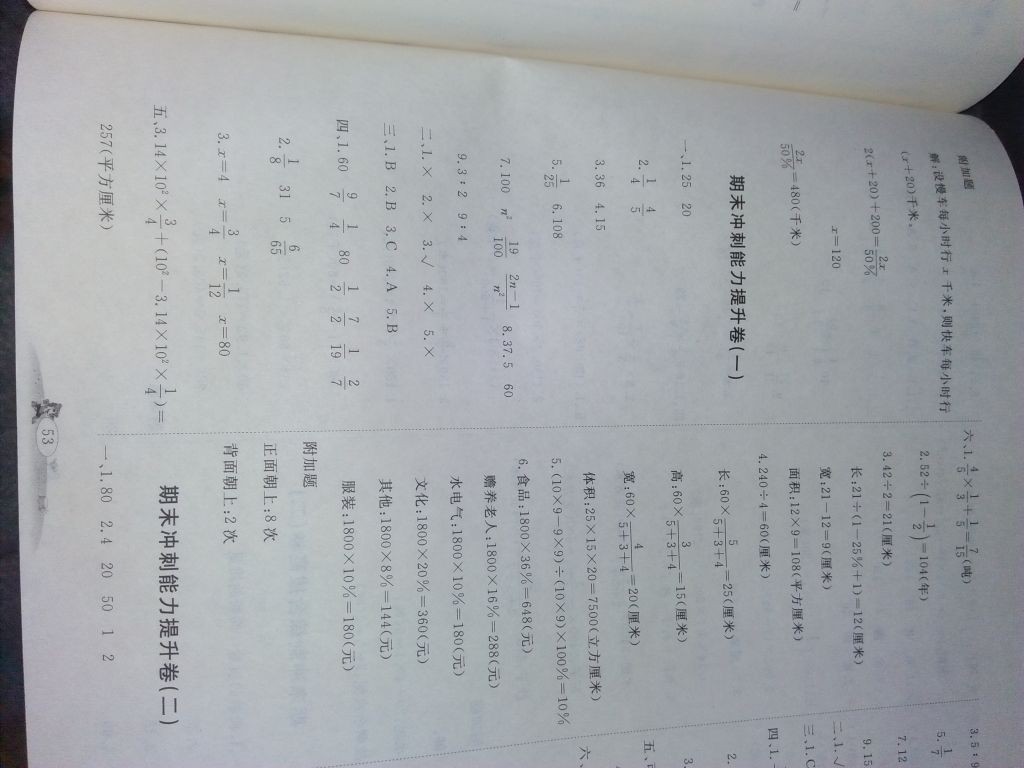 附加题
解:设慢车每小时行x千米,则快车每小时行
(x+20)千米。
2(x+20)+200=2x/50%
x=120
2x/50%=480(千米)
期末冲刺能力提升卷(一)
一、1.25 20
2.1/4 4/5
3.36 4.15
5.1/25 6.108
7.100 n² 19/100 2n-1/n² 8.37.5 60
9.3:2 9:4
二、1.× 2.× 3.√ 4.× 5.×
三、1.B 2.B 3.C 4.A 5.B
四、1.60 9/7 1/4 80 1/2 7/2 1/19 2/7
2.1/8 31 5 6/65
3.x=4 x=3/4 x=1/12 x=80
五、3.14×10²×3/4+(10²-3.14×10²×1/4)=
257(平方厘米)
六、1.4/5×1/3+1/5=7/15(吨)
2.52÷(1-1/2)=104(年)
3.42÷2=21(厘米)
长:21÷(1-25%+1)=12(厘米)
宽:21-12=9(厘米)
面积:12×9=108(平方厘米)
4.240÷4=60(厘米)
长:60×5/5+3+4=25(厘米)
高:60×3/5+3+4=15(厘米)
宽:60×4/5+3+4=20(厘米)
体积:25×15×20=7500(立方厘米)
5.(10×9-9×9)÷(10×9)×100%=10%
6.食品:1800×36%=648(元)
赡养老人:1800×16%=288(元)
水电气:1800×10%=180(元)
文化:1800×20%=360(元)
其他:1800×8%=144(元)
服装:1800×10%=180(元)
附加题
正面朝上:8次
背面朝上:2次
期末冲刺能力提升卷(二)
一、1.80 2.4 20 50 1 2
3.5:9
5.1/7
7.12
9.15
二、1.√
三、1.C
四、1.
2.
3.
五、
六、
53